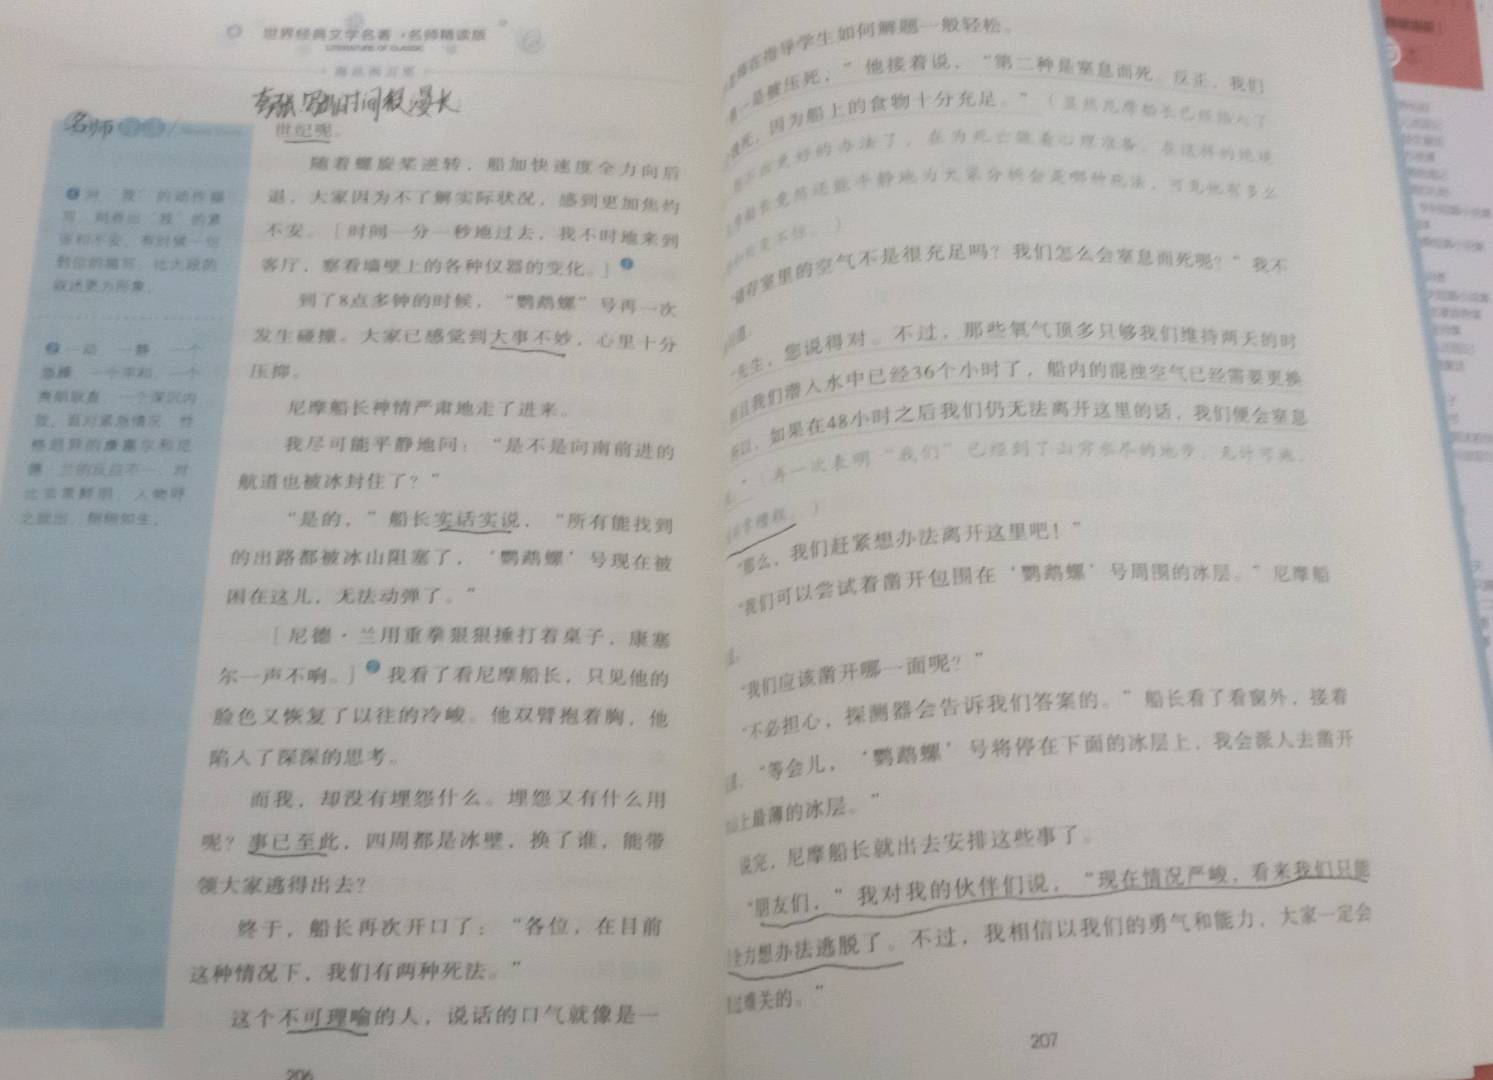 世界经典文学名著·名师精读版
LITERATURE OF CLASSIC
海底两万里
夸张 写出时间很漫长
世纪呢。
随着螺旋桨逆转，船加快速度全力向后
退，大家因为不了解实际状况，感到更加焦灼
不安。［时间一分一秒地过去，我不时地来到
客厅，察看墙壁上的各种仪器的变化。］❶
到了8点多钟的时候，“鹦鹉螺”号再一次
发生碰撞。大家已感觉到大事不妙，心里十分
压抑。
尼摩船长神情严肃地走了进来。
我尽可能平静地问：“是不是向南前进的
航道也被冰封住了？”
“是的，”船长实话实说，“所有能找到
的出路都被冰山阻塞了，‘鹦鹉螺’号现在被
困在这儿，无法动弹了。”
［尼德·兰用重拳狠狠捶打着桌子，康塞
尔一声不响。］❷我看了看尼摩船长，只见他的
脸色又恢复了以往的冷峻。他双臂抱着胸，他
陷入了深深的思考。
而我，却没有埋怨什么。埋怨又有什么用
呢？事已至此，四周都是冰壁，换了谁，能带
领大家逃得出去？
终于，船长再次开口了：“各位，在目前
这种情况下，我们有两种死法。”
这个不可理喻的人，说话的口气就像是一
206
名师
❶对“我”的动作描
写，刻画出“我”的紧
张和不安。有时候一句
到位的描写，比大段的
叙述更为形象。
❷一动，一静，一个
急躁，一个平和，一个
爽朗耿直，一个深沉内
敛，面对紧急情况，性
格迥异的康塞尔和尼
德·兰的反应不一，对
比非常鲜明，人物呼
之欲出，栩栩如生。
在指导学生如何解题一般轻松。
一是被压死，”他接着说，“第二种是窒息而死。反正，我们
死，因为船上的食物十分充足。”（显然尼摩船长已经陷入了
更好的办法了，在为死亡做着心理准备。在这样的绝境
船长竟然还能平静地为大家分析会是哪种死法，可见他有多么
变不惊。）
“储存室里的空气不是很充足吗？我们怎么会窒息而死呢？”我不
道。
“先生，您说得对。不过，那些氧气顶多只够我们维持两天的时
且我们潜入水中已经36个小时了，船内的混浊空气已经需要更换
所以，如果在48小时之后我们仍无法离开这里的话，我们便会窒息
”（再一次表明“我们”已经到了山穷水尽的地步，无计可施，
非常糟糕。）
“那么，我们赶紧想办法离开这里吧！”
“我们可以尝试着凿开包围在‘鹦鹉螺’号周围的冰层。”尼摩船
“我们应该凿开哪一面呢？”
“不必担心，探测器会告诉我们答案的。”船长看了看窗外，接着
“等会儿，‘鹦鹉螺’号将停在下面的冰层上，我会派人去凿开
上最薄的冰层。”
说完，尼摩船长就出去安排这些事了。
“朋友们，”我对我的伙伴们说，“现在情况严峻，看来我们只能
全力想办法逃脱了。不过，我相信以我们的勇气和能力，大家一定会
过难关的。”
207